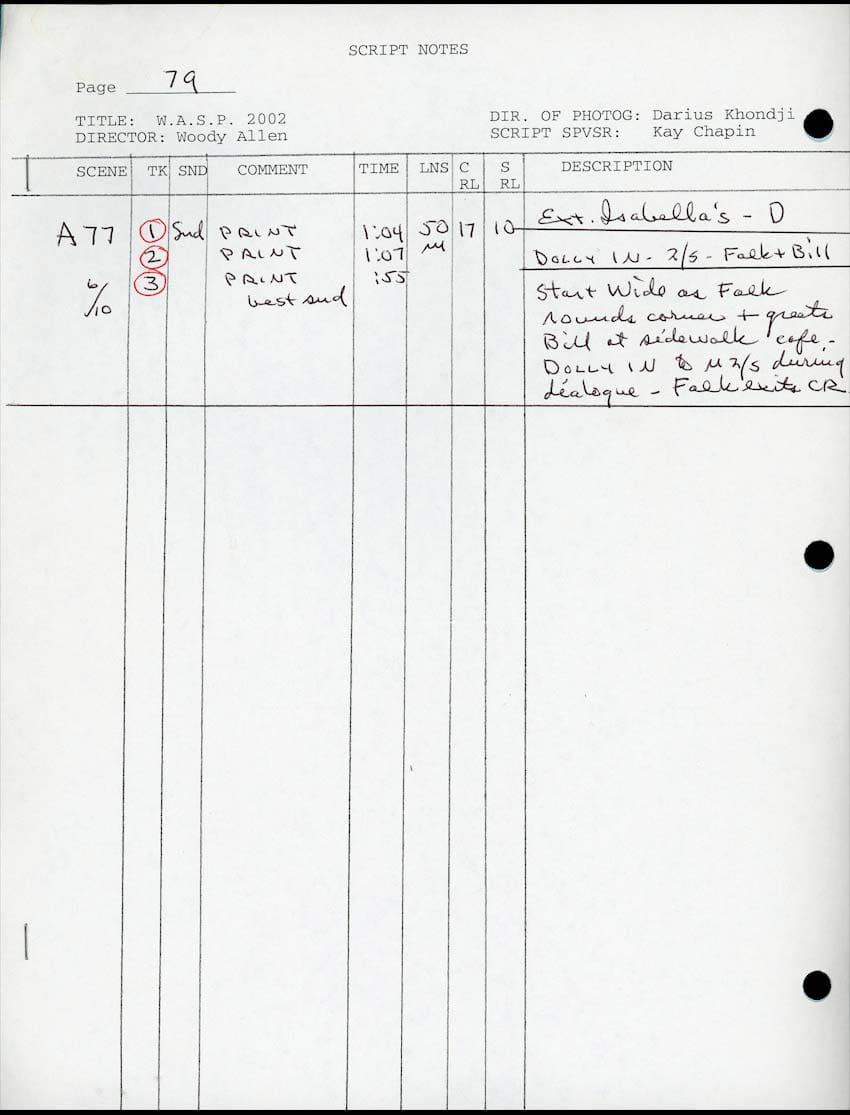 SCRIPT NOTES
Page 79
TITLE: W.A.S.P. 2002
DIRECTOR: Woody Allen
DIR. OF PHOTOG: Darius Khondji
SCRIPT SPVSR: Kay Chapin
SCENE TK SND COMMENT TIME LNS C RL S RL DESCRIPTION
A77 1 Snd PRINT 1:04 50 17 10 Ext. Isabella's - D
2 PRINT 1:07 M DOLLY IN - 2/S - Falk + Bill
3 PRINT :55
6/10 best snd
Start Wide as Falk
rounds corner + greets
Bill at sidewalk cafe -
DOLLY IN to M 2/S during
dialogue - Falk exits CR